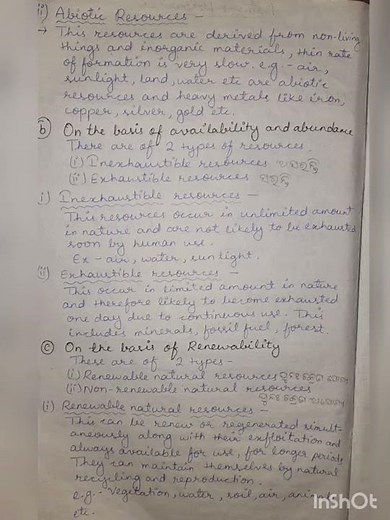 ii) Abiotic Resources -
→ This resources are derived from non-living
things and inorganic materials, thin rate
of formation is very slow. e.g. - air,
sunlight, land, water etc are abiotic
resources and heavy metals like iron,
copper, silver, gold etc.
(b) On the basis of availability and abundance
There are of 2 types of resources.
(i) Inexhaustible resources
(ii) Exhaustible resources
i) Inexhaustible resources -
This resources occur in unlimited amount
in nature and are not likely to be exhausted
soon by human use.
Ex - air, water, sunlight.
(ii) Exhaustible resources -
This occur in limited amount in nature
and therefore likely to become exhausted
one day due to continuous use. This
includes minerals, fossil fuel, forest.
(c) On the basis of Renewability
These are of 2 types -
(i) Renewable natural resources
(ii) Non-renewable natural resources
(i) Renewable natural resources -
This can be renew or regenerated simult-
aneously along with their exploitation and
always available for use, for longer periods.
They can maintain themselves by natural
recycling and reproduction.
e.g. - Vegetation, water, soil, air, animals
etc.
InShOt